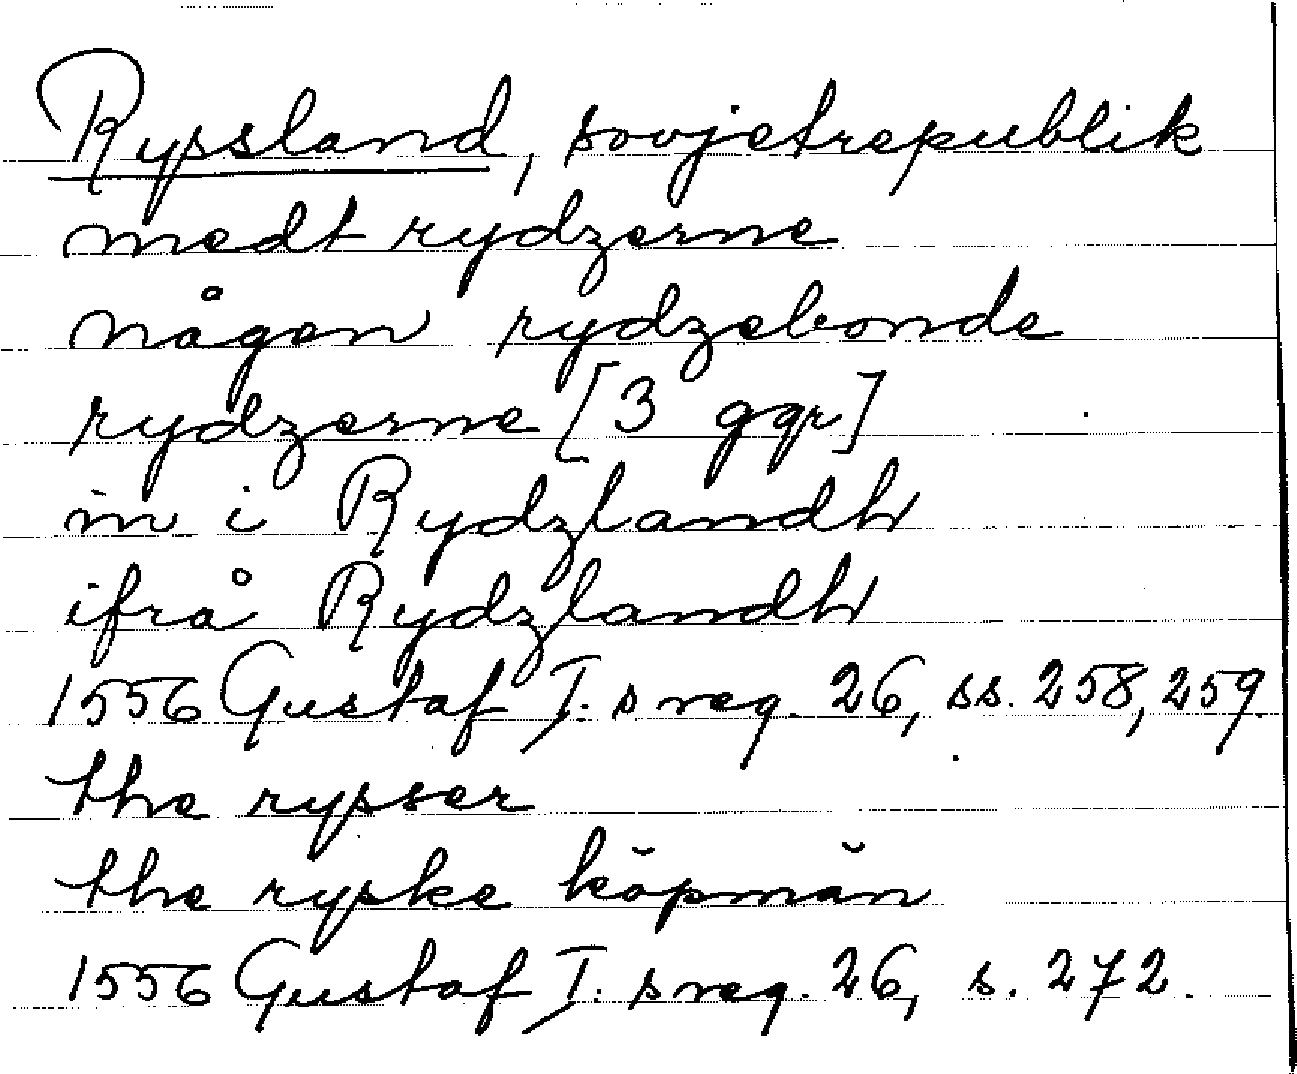 Ryssland, sovjetrepublik
medt rydzerne
någen rydzebonde
rydzerne [3 ggr]
in i Rydzlandh
ifrå Rydzlandh
1556 Gustaf I:s reg. 26, ss. 258, 259.
the rysser
the ryske köpmän
1556 Gustaf I:s reg. 26, s. 272.